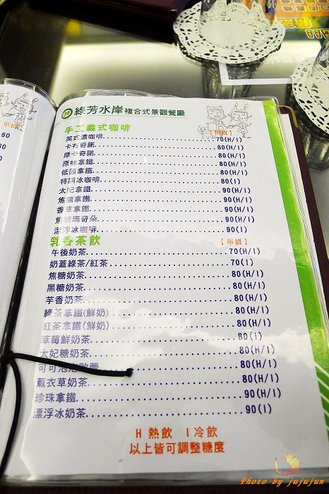 綠芳水岸 複合式景觀餐廳
手工義式咖啡 【單價】
美式濃咖啡 70(H/I)
卡布奇諾 80(H/I)
摩卡奇諾 80(H/I)
原味拿鐵 80(H/I)
低脂拿鐵 80(H/I)
特調冰咖啡 80(I)
太妃拿鐵 90(H/I)
焦糖拿鐵 90(H/I)
香草拿鐵 90(H/I)
焦糖瑪奇朵 90(H/I)
漂浮冰咖啡 90(I)
乳香茶飲 【單價】
午後奶茶 70(H/I)
奶蓋綠茶/紅茶 70(I)
焦糖奶茶 80(H/I)
黑糖奶茶 80(H/I)
芋香奶茶 80(H/I)
綠茶拿鐵(鮮奶) 80(H/I)
紅茶拿鐵(鮮奶) 80(H/I)
草莓鮮奶茶 80(H/I)
太妃糖奶茶 80(H/I)
可可 80(H/I)
薰衣草奶茶 80(H/I)
珍珠拿鐵 90(H/I)
漂浮冰奶茶 90(I)
H 熱飲 I 冷飲
以上皆可調整糖度
Photo by jujujun